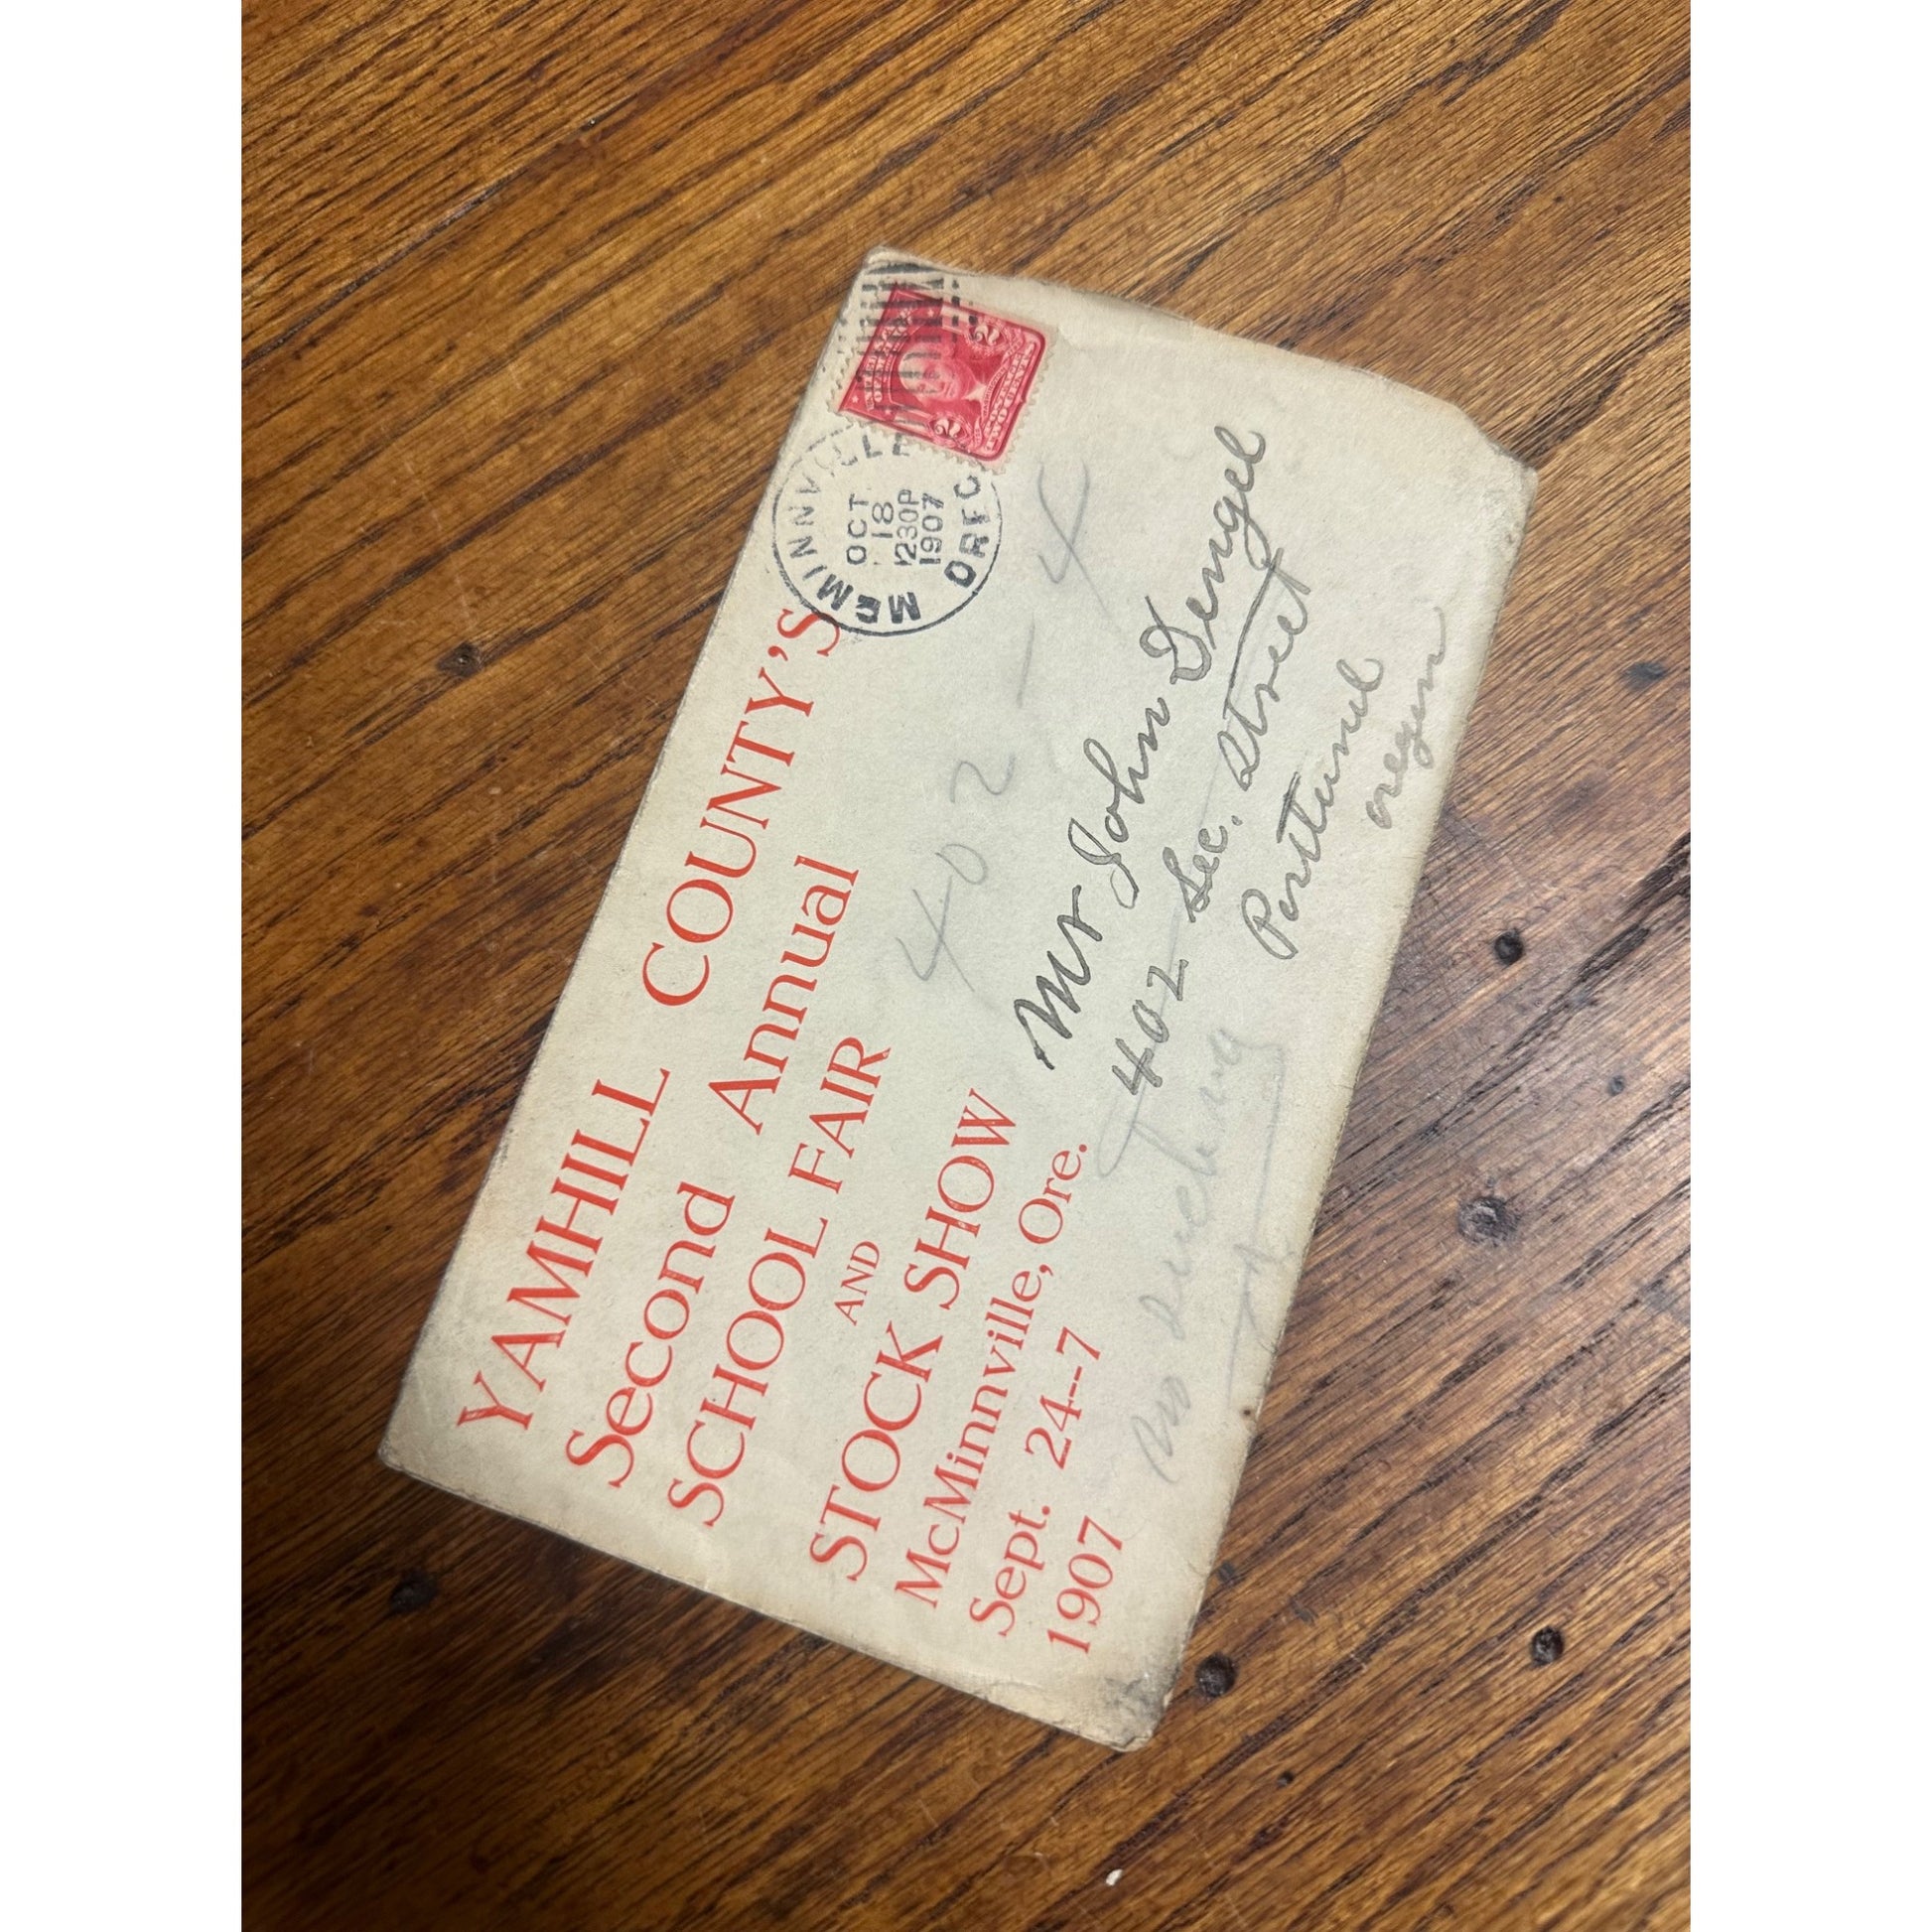 YAMHILL COUNTY'S
Second Annual
SCHOOL FAIR
AND
STOCK SHOW
McMinnville, Ore.
Sept. 24--7
1907
MCMINNVILLE
OCT
18
1230P
1907
OREG
2 2
POSTAGE
TWO CENTS
402 - 4
Mr John Dengel
402 Sec. Street
Portland
oregon
no